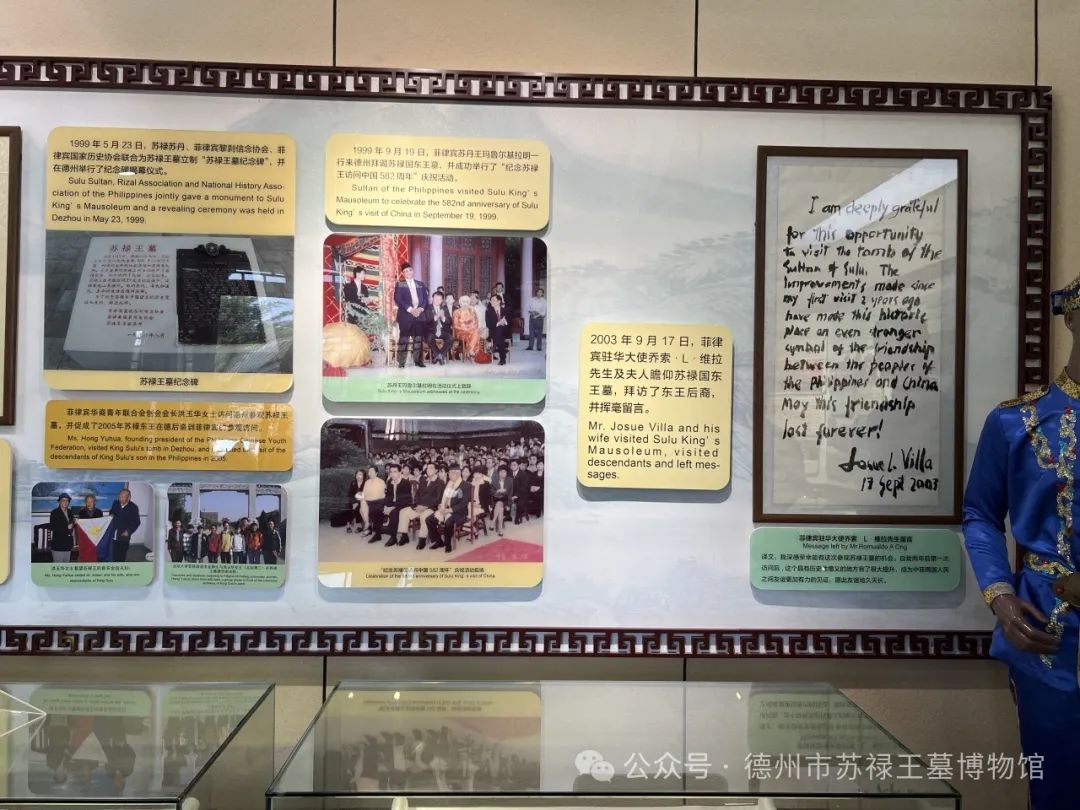 1999年5月23日，苏禄苏丹、菲律宾黎刹信念协会、菲
律宾国家历史协会联合为苏禄王墓立制“苏禄王墓纪念碑”，并
在德州举行了纪念碑揭幕仪式。
Sulu Sultan, Rizal Association and National History Asso-
ciation of the Philippines jointly gave a monument to Sulu
King's Mausoleum and a revealing ceremony was held in
Dezhou in May 23, 1999.
苏禄王墓
苏禄王墓纪念碑
菲律宾华裔青年联合会创会会长洪玉华女士访问德州参观苏禄王
墓，并促成了2005年苏禄东王在德后裔到菲律宾的参观访问。
Ms. Hong Yuhua, founding president of the Chinese Youth
Federation, visited King Sulu's tomb in Dezhou, and visit of the
descendants of King Sulu's son in the Philippines in 2005.
1999年9月19日，菲律宾苏丹王玛鲁尔基拉明一
行来德州拜谒苏禄国东王墓，并成功举行了“纪念苏禄
王访问中国582周年”庆祝活动。
Sultan of the Philippines visited Sulu King's
Mausoleum to celebrate the 582nd anniversary of Sulu
King's visit of China in September 19, 1999.
苏丹王玛鲁尔基拉明在活动仪式上致辞
“纪念苏禄王访问中国582周年”庆祝活动现场
Celebration of the 582nd anniversary of Sulu King's visit of China
2003年9月17日，菲律
宾驻华大使乔索·L·维拉
先生及夫人瞻仰苏禄国东
王墓，拜访了东王后裔，
并挥毫留言。
Mr. Josue Villa and his
wife visited Sulu King's
Mausoleum, visited
descendants and left mes-
sages.
I am deeply grateful
for this opportunity
to visit the tomb of the
Sultan of Sulu. The
improvements made since
my first visit 2 years ago
have made this historic
place an even stronger
symbol of the friendship
between the peoples of
the Philippines and China
May this friendship
last forever!
Josue L. Villa
17 Sept 2003
菲律宾驻华大使乔索 L 维拉先生留言
Message left by Mr.Romualdo A Ong
译文：我深感荣幸能有这次参观苏禄王墓的机会。自我两年前第一次
访问后，这个具有历史意义的地方有了很大提升，成为中菲两国人民
之间友谊更加有力的见证。愿此友谊地久天长。
公众号·德州市苏禄王墓博物馆